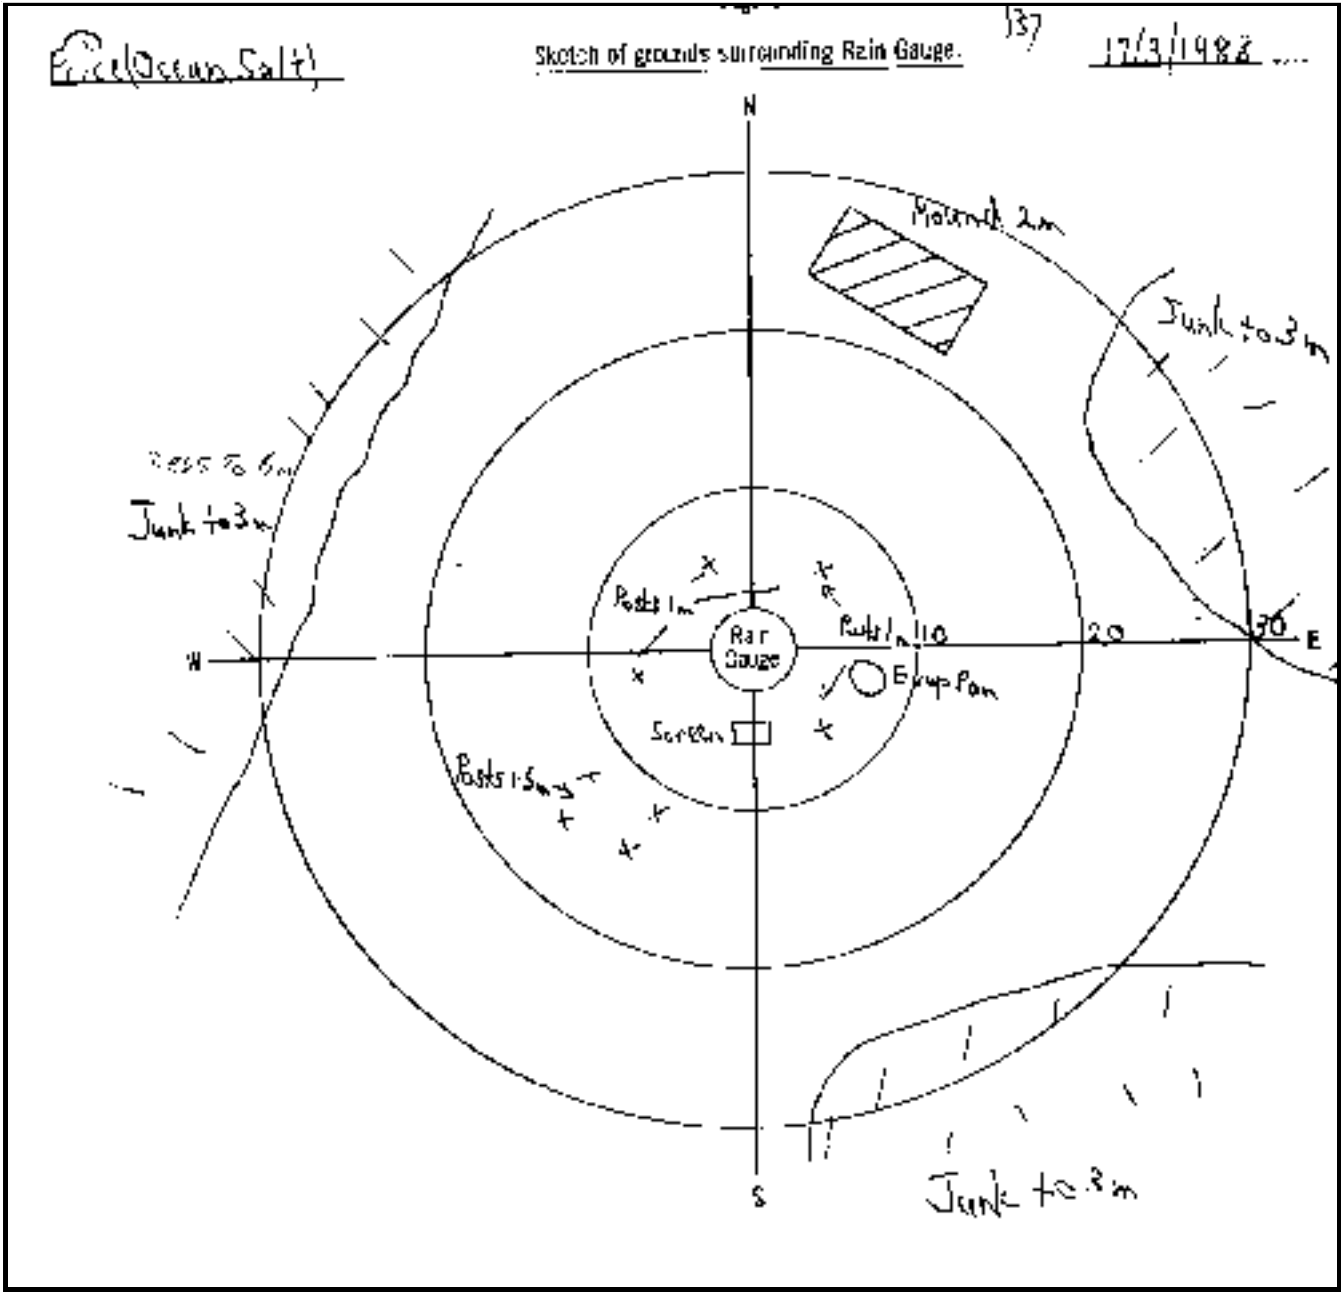 Price (Ocean Salt)
Sketch of grounds surrounding Rain Gauge.
137
17/3/1988
N
Mound 2m
Junk to 3m
to 6m
Junk to 3m
Posts 1m
Posts 1m
10
20
30
W
Rain
Gauge
E
Evap Pan
Screen
Posts 1.5m
S
Junk to 3m